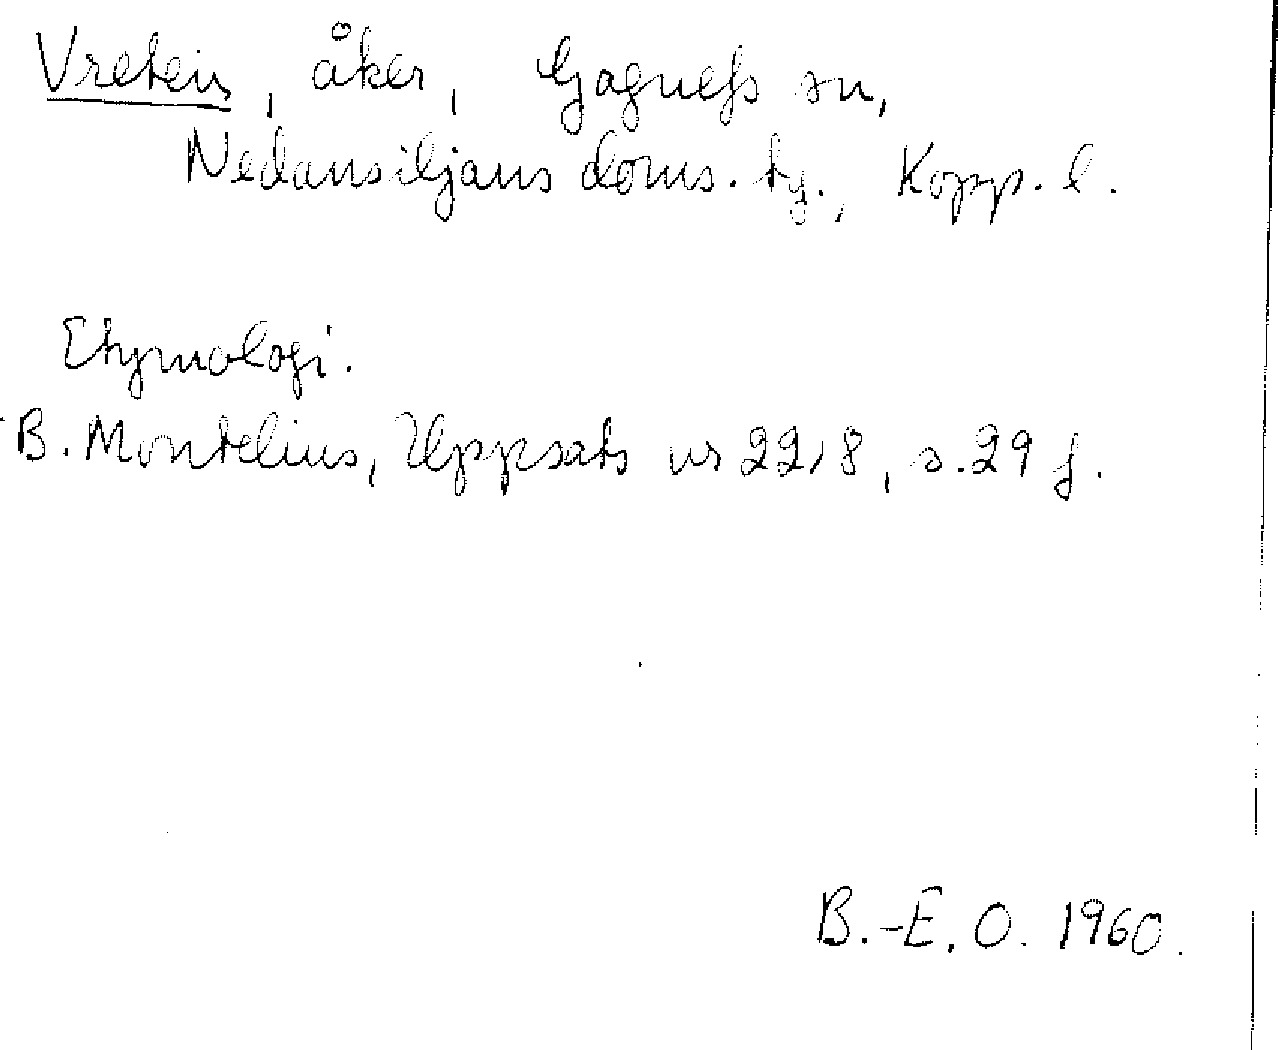 Vreten, åker, Gagnefs sn,
Nedansiljans doms. tg., Kopp. l.
Etymologi.
B. Montelius, Uppsats nr 2218, s. 29 f.
B.-E. O. 1960.